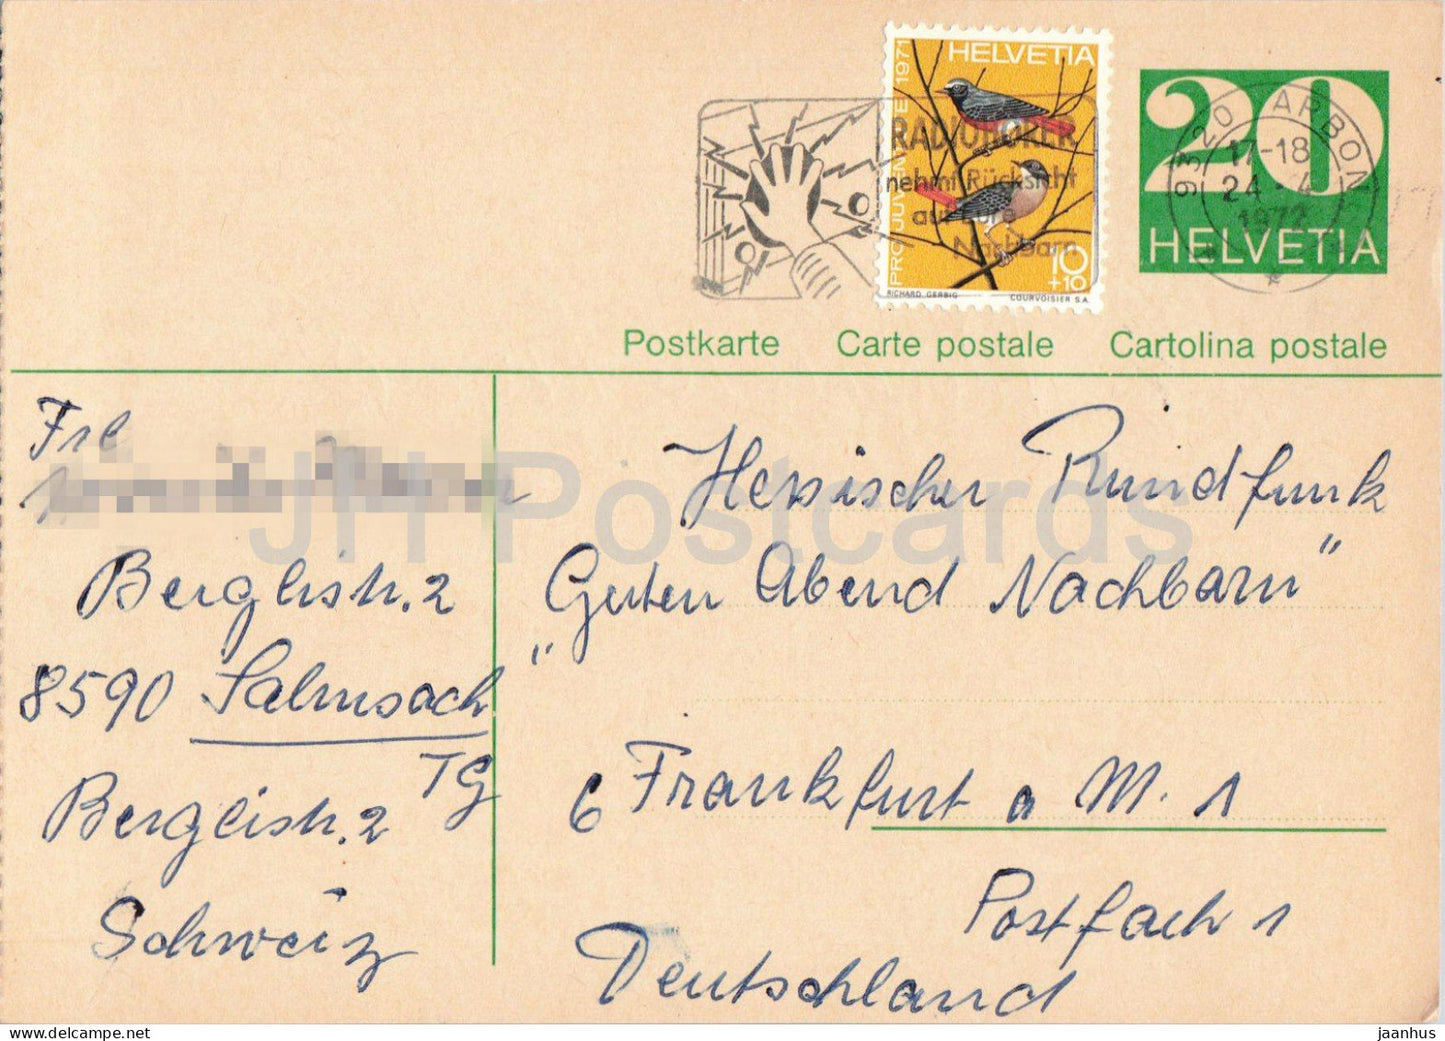 HELVETIA
PRO JUVENTUTE 1971
10
+10
RICHARD GERBIG
COURVOISIER S.A.
RADIOHÖRER
nehmt Rücksicht
auf Eure
Nachbarn
20
HELVETIA
9320 ARBON
17-18
24.-4
1972
Postkarte Carte postale Cartolina postale
Frl
Berglistr. 2
8590 Salmsach
TG
Berglistr. 2
Schweiz
Hessischer Rundfunk
"Guten Abend Nachbarn"
6 Frankfurt a M. 1
Postfach 1
Deutschland
JH Postcards
delcampe.net
jaanhus